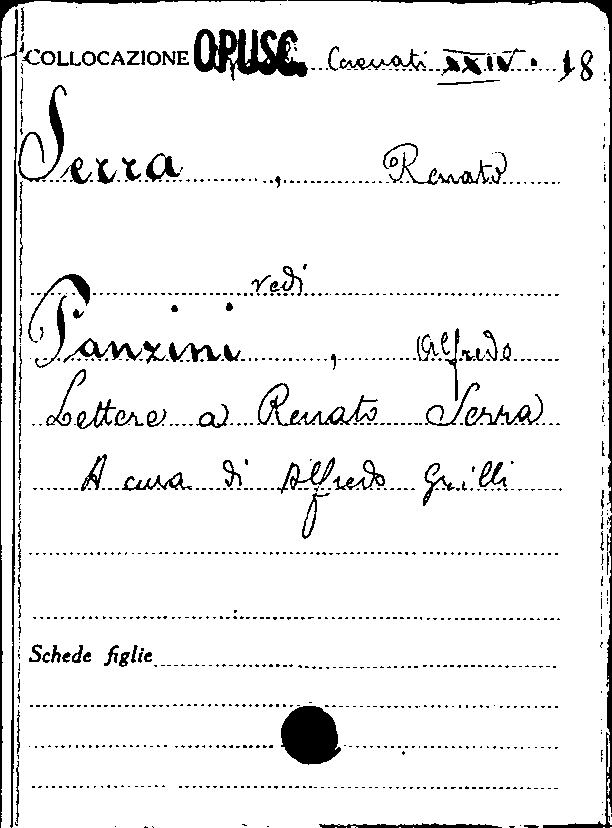 COLLOCAZIONE OPUSC. XXIV. 18
Serra, Renato
vedi
Panzini, Alfredo
Lettere a Renato Serra
A cura di Alfredo Grilli
Schede figlie